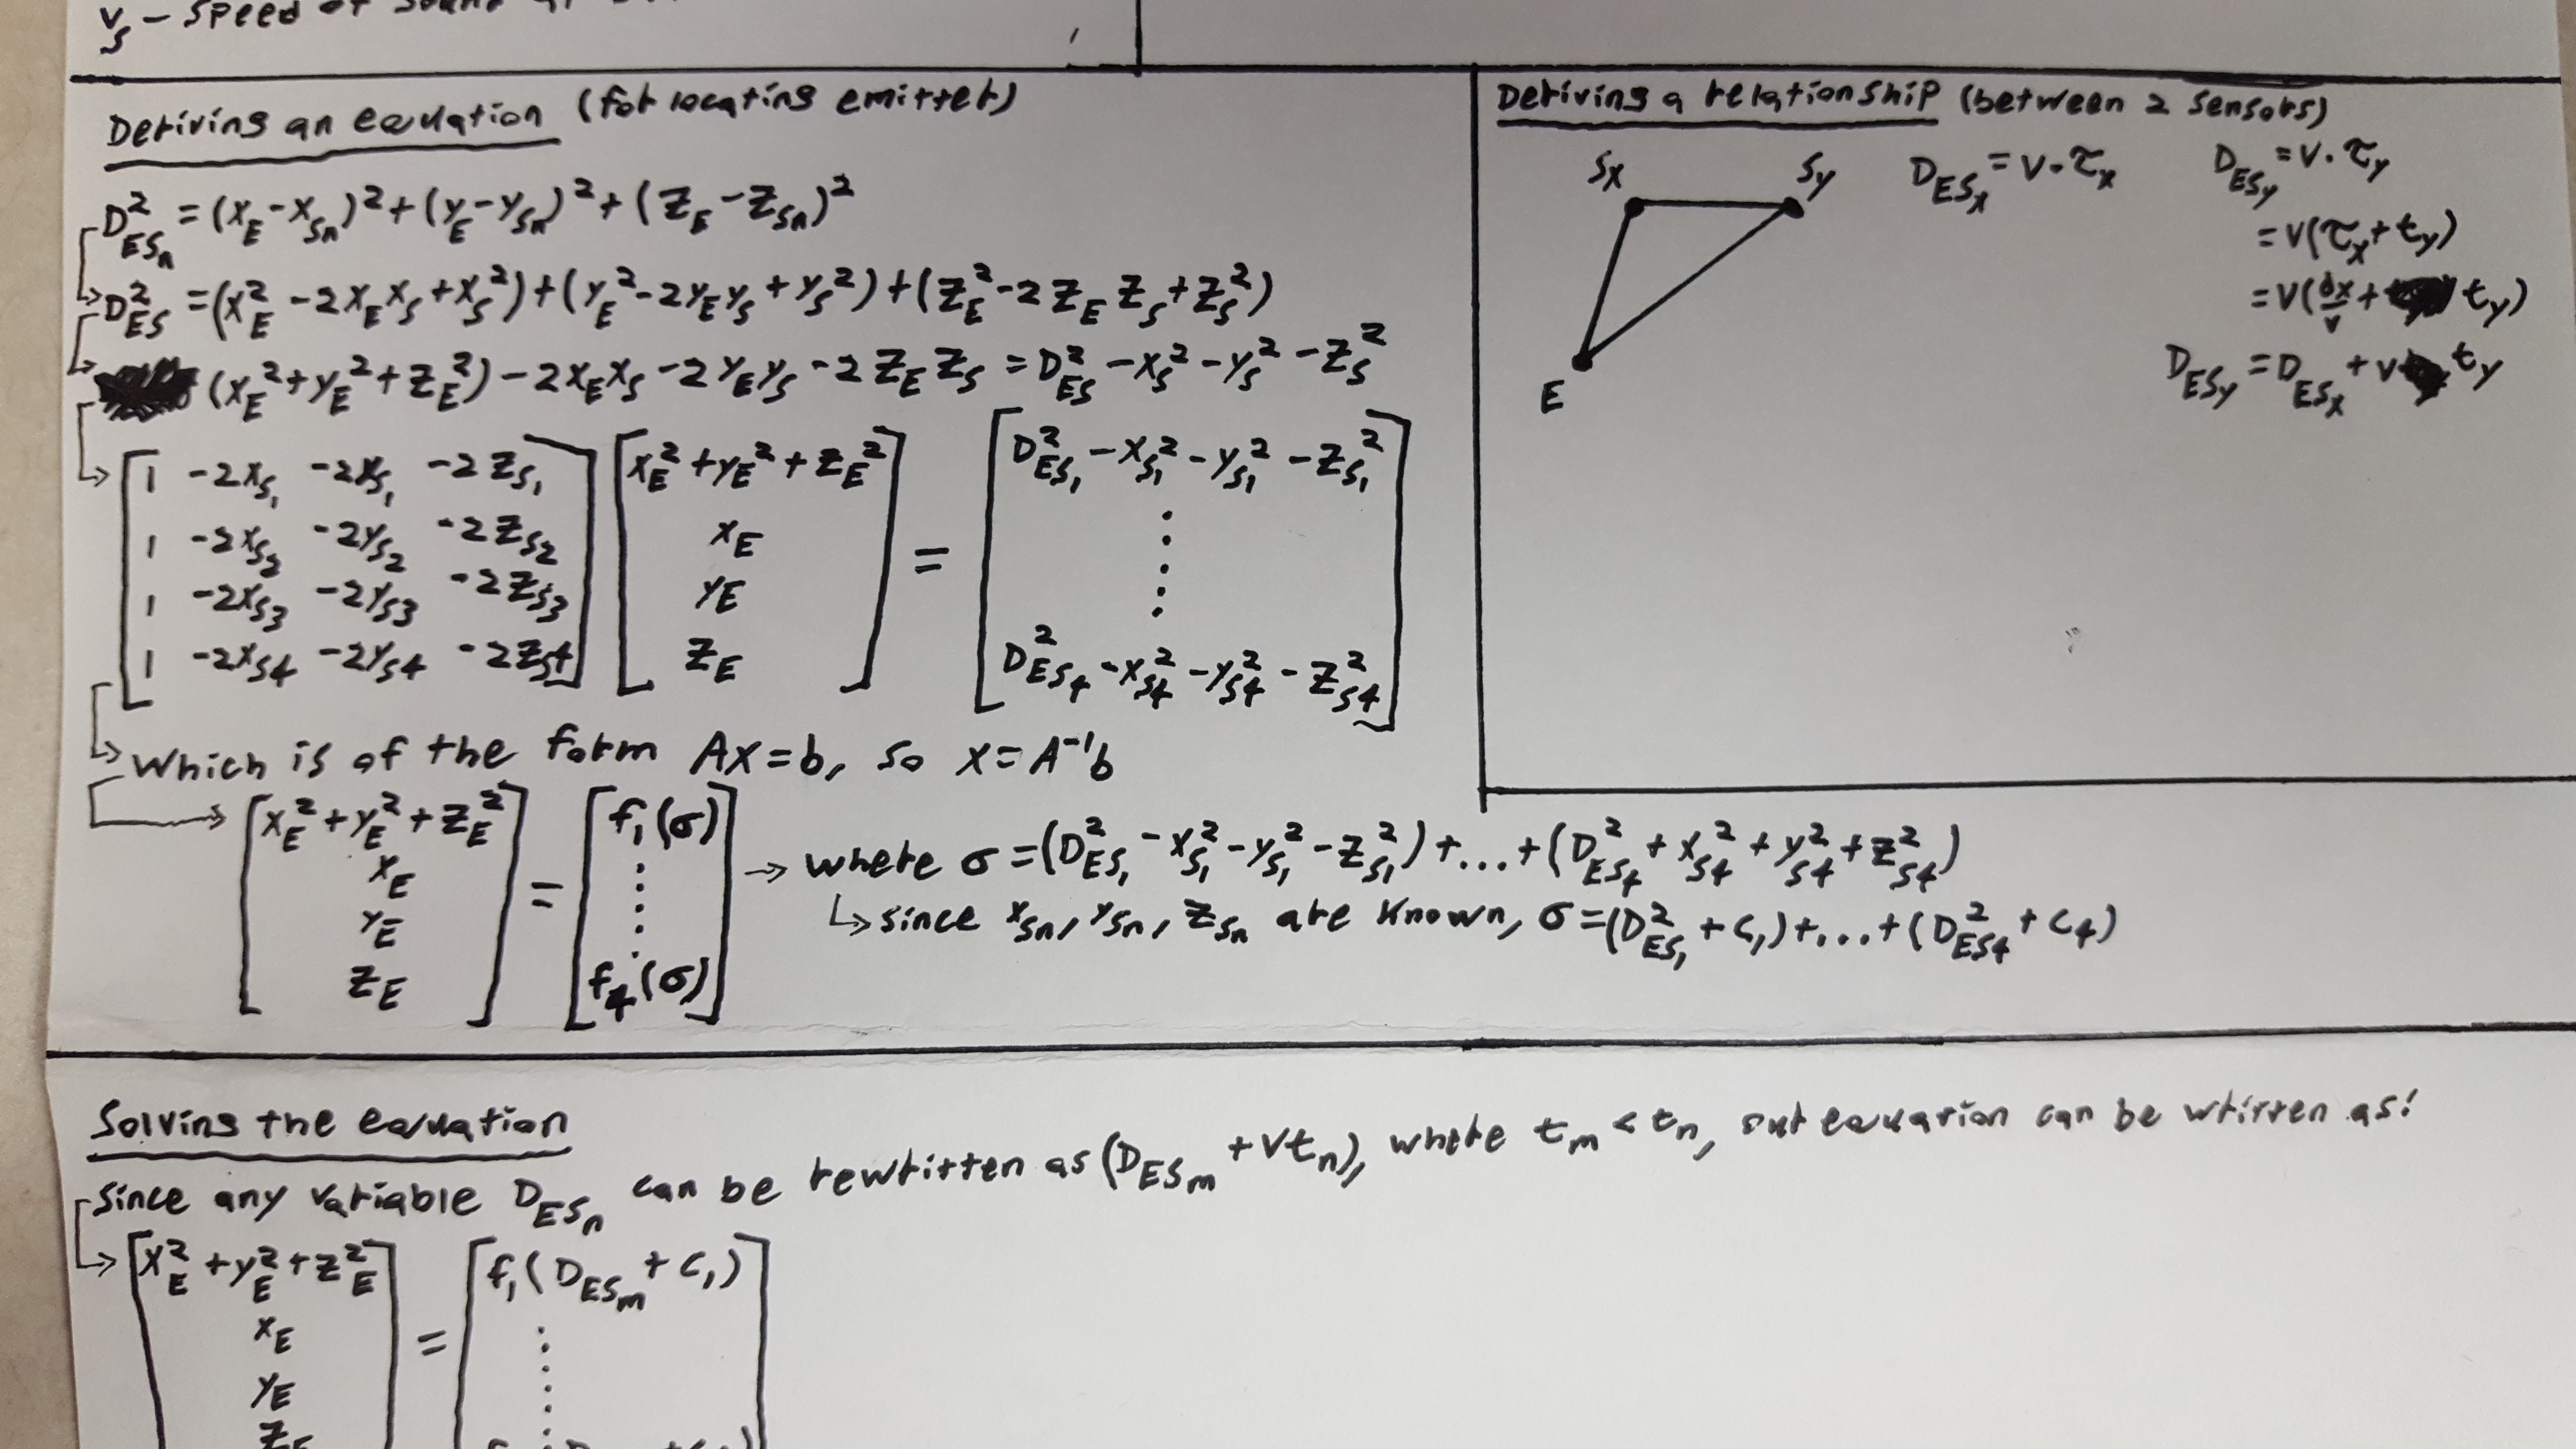 Deriving an equation (for locating emitter)
D²_ESn = (x_E - x_Sn)² + (y_E - y_Sn)² + (z_E - z_Sn)²
D²_ES = (x_E² - 2x_E x_S + x_S²) + (y_E² - 2y_E y_S + y_S²) + (z_E² - 2z_E z_S + z_S²)
(x_E² + y_E² + z_E²) - 2x_E x_S - 2y_E y_S - 2z_E z_S = D²_ES - x_S² - y_S² - z_S²
[1 -2x_S1 -2y_S1 -2z_S1] [x_E² + y_E² + z_E²] [D²_ES1 - x²_S1 - y²_S1 - z²_S1]
1 -2x_S2 -2y_S2 -2z_S2 x_E ⋮
1 -2x_S3 -2y_S3 -2z_S3 y_E = ⋮
1 -2x_S4 -2y_S4 -2z_S4 z_E D²_ES4 - x²_S4 - y²_S4 - z²_S4
→ which is of the form Ax=b, so x=A⁻¹b
→ [x_E² + y_E² + z_E²] [f₁(σ)] → where σ = (D²_ES1 - x²_S1 - y²_S1 - z²_S1) + ... + (D²_ES4 + x²_S4 + y²_S4 + z²_S4)
x_E = ⋮ ↳ since x_Sn, y_Sn, z_Sn are known, σ = (D²_ES1 + c₁) + ... + (D²_ES4 + c₄)
y_E
z_E f₄(σ)
Deriving a relationship (between 2 sensors)
Sx
Sy
E
D_ESx = v·τx
D_ESy = v·τy
= v(τx + ty)
= v(dx/v + ty)
D_ESy = D_ESx + v ty
Solving the equation
Since any variable D_ESn can be rewritten as (D_ESm + vtn), where tm < tn, our equation can be written as:
→ [x_E² + y_E² + z_E²] = [f₁(D_ESm + c₁)]
x_E ⋮
y_E